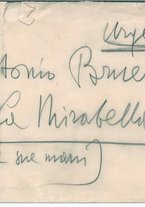 Urge
tonio Bruer
La Mirabella
e sue mani)